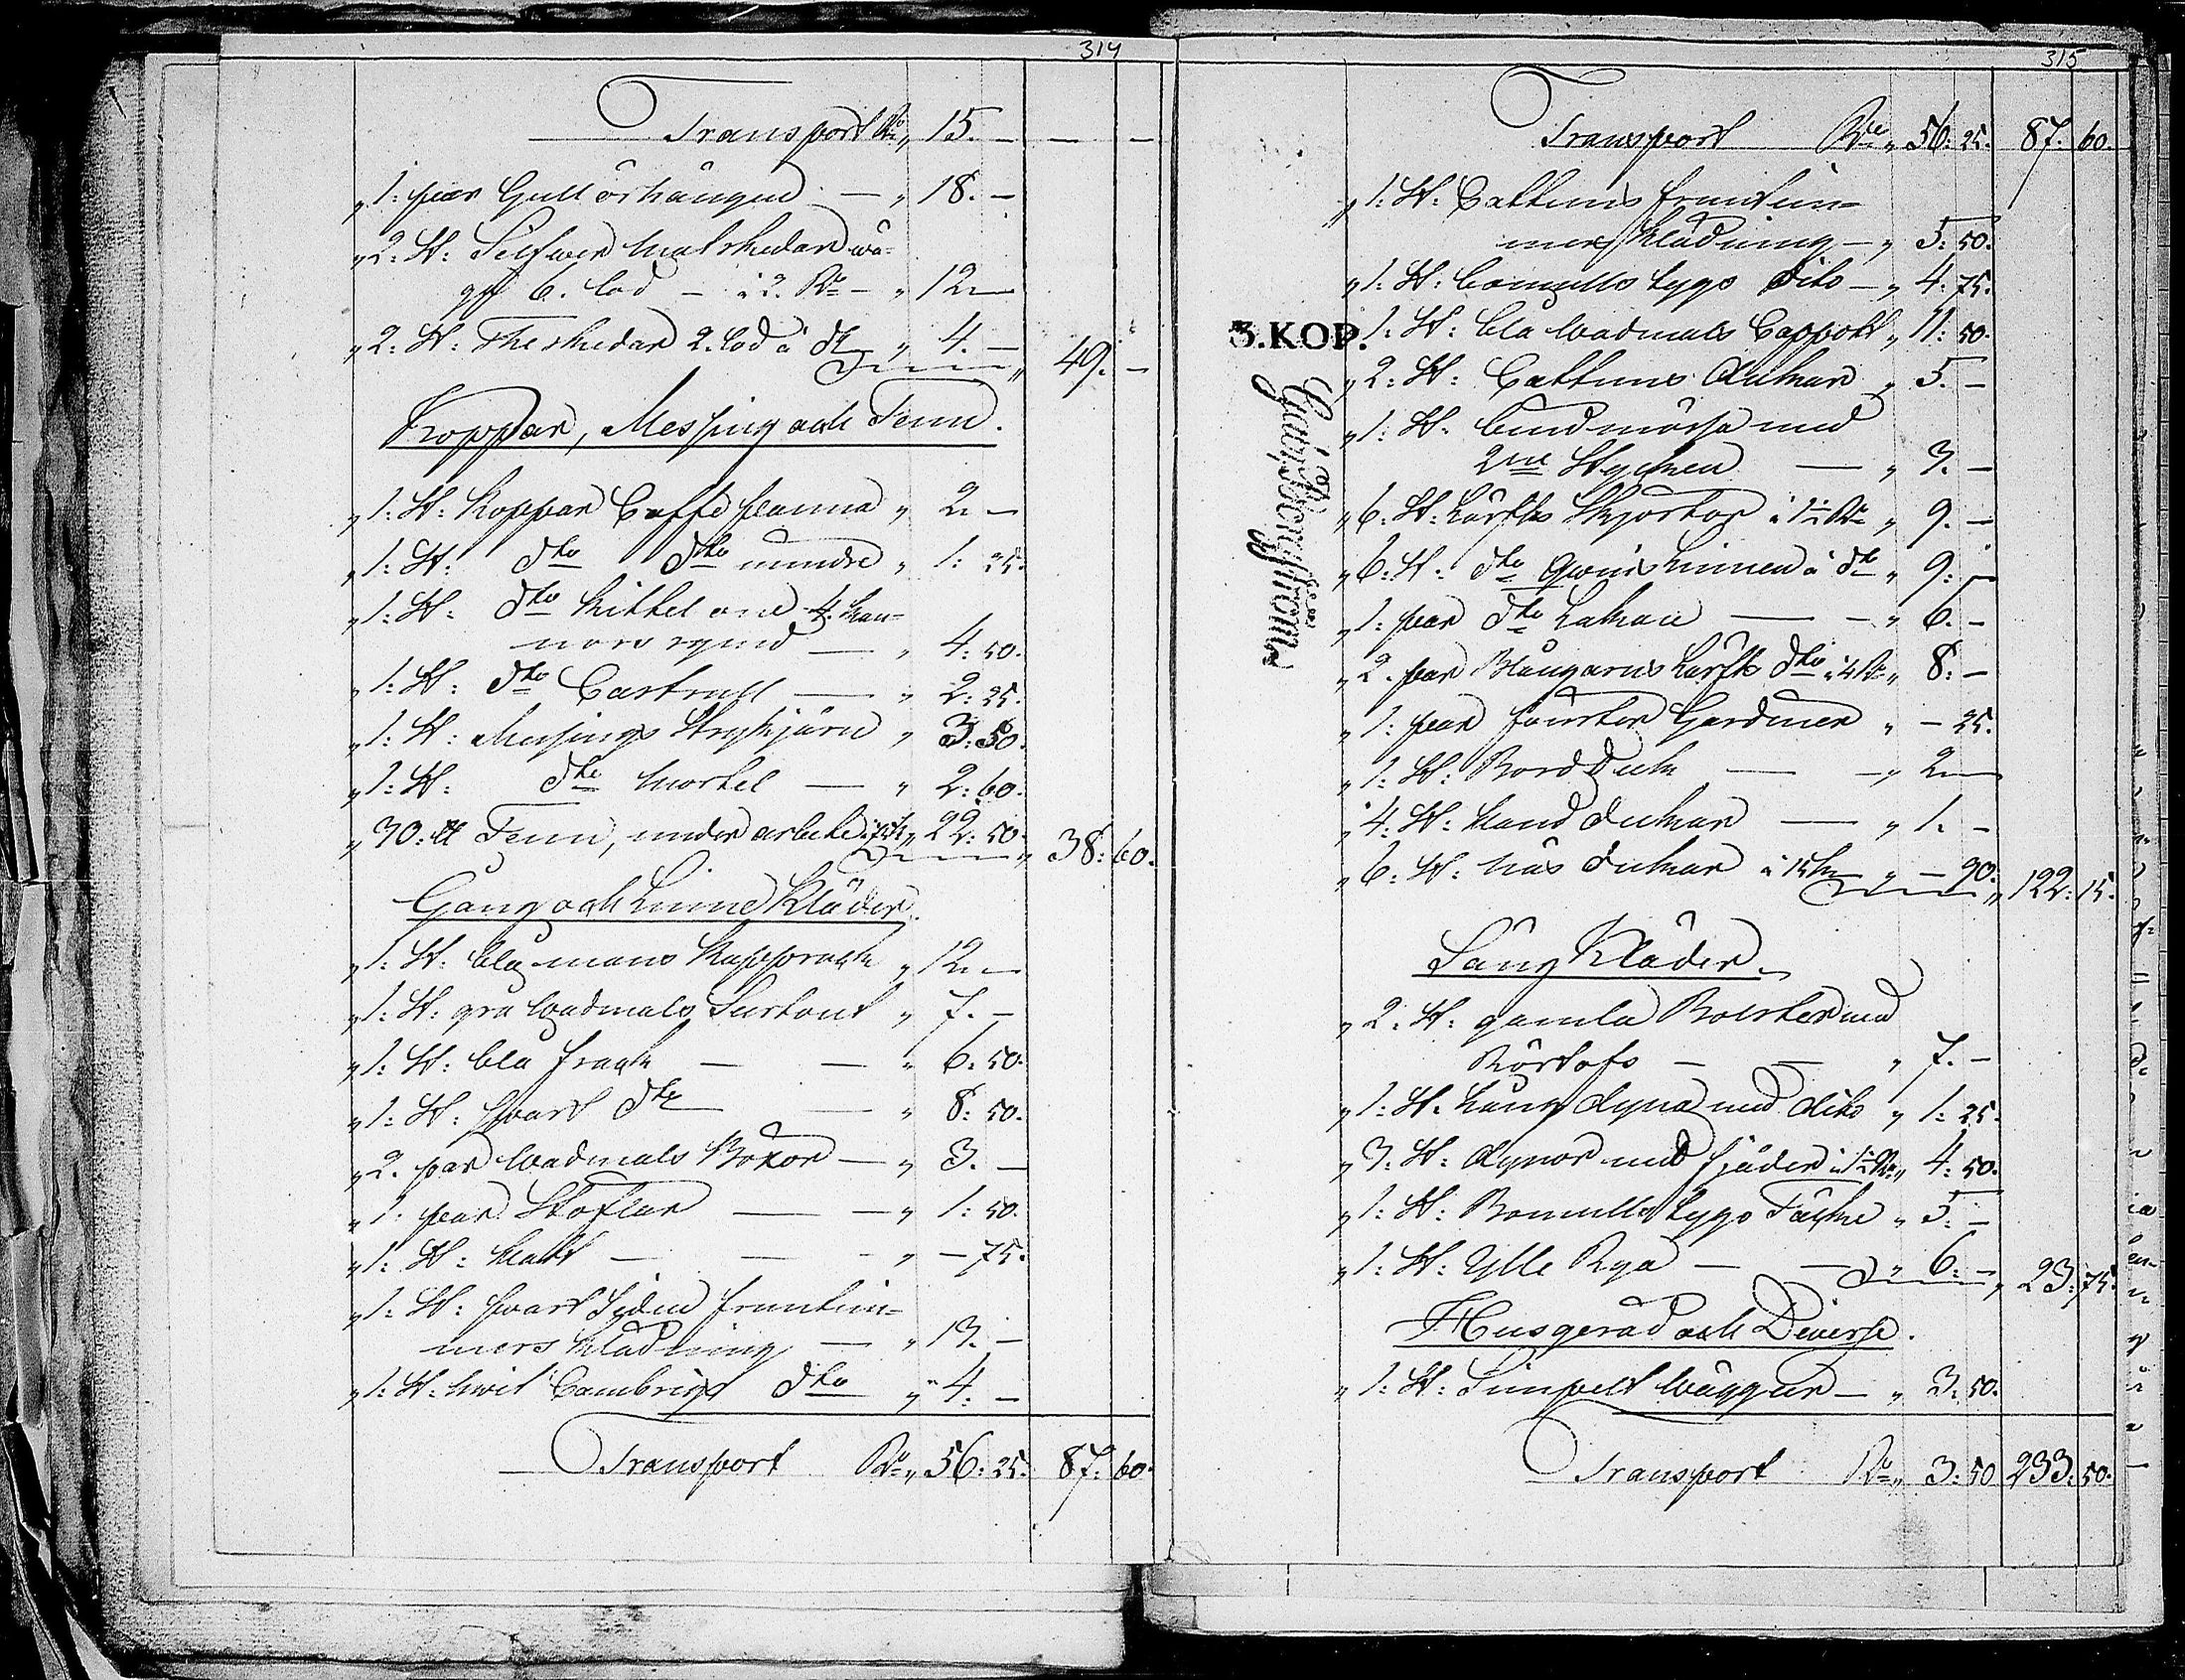 314
Transport Rb " 15. — — —
" 1: par Gull örhängen — " 18. —
" 2: St: Silfwer matskedar wä-
ga 6. lod — à 2. Rb — " 12. —
" 2: St: Theskedar 2. lod à do " 4. — " 49. —
Koppar, Messing och Tenn.
" 1: St: Koppar Caffe panna " 2. —
" 1: St: dto dto mindre " 1: 25.
" 1: St: dto Kittel om 4. kan-
nors rymd — " 4: 50.
" 1: St: dto Castrull — " 2: 25.
" 1: St: Messings Strykjärn " 3: 50.
" 1: St: dto mortel — " 2: 60.
" 30: ℔ Tenn, under arbete " 22: 50. " 38: 60.
Gång och Linne Kläder.
" 1: St: blå mans Kapprock " 12. —
" 1: St: grå wadmals Surtout " 7. —
" 1: St: blå frack — — " 6: 50.
" 1: St: swart dto — " 8: 50.
" 2. par wadmals Böxor — " 3. —
" 1: par Stöflar — — " 1: 50.
" 1: St: hatt — — " — 75.
" 1: St: swart Siden fruntim-
mers klädning — " 13. —
" 1: St: hwit Cambrigs dto " 4. —
Transport Rb " 56: 25. 87: 60.
315
Transport Rb " 56: 25. 87: 60.
" 1: St: Cattuns fruntim-
mers klädning — " 5: 50.
" 1: St: bomulls tygs dito — " 4: 75.
3.KOP.
" 1: St: blå wadmals Cappott " 11: 50.
" 2: St: Cattuns dukar " 5. —
" 1: St: bindmössa med
2ne Stycken — " 3. —
" 6: St: Lärfts skjortor à 1½ Rb " 9. —
" 6: St: dto Qwins linnen à do " 9. —
" 1: par dto Lakan — — " 6. —
" 2. par Blångarns Lärfts dto à 4 Rb " 8: —
" 1: par fönster Gardiner " — 25.
" 1: St: Bord Duk — — " 2. —
" 4: St: hand dukar — " 1. —
" 6: St: näs dukar à 15 " — 90. " 122: 15.
Säng Kläder.
" 2: St: gamla Bolster med
Rörtofs — — " 7. —
" 1: St: Lång dyna med dito " 1: 25.
" 3: St: dynor med fjäder à 1½ Rb " 4: 50.
" 1: St: Bomulls tygs Täcke " 5. —
" 1: St: Ylle Rya — — " 6: — " 23: 75.
Husgeråd och Diverse.
" 1: St: Simpelt Wäggur — " 3: 50.
Transport Rb " 3: 50 233: 50.